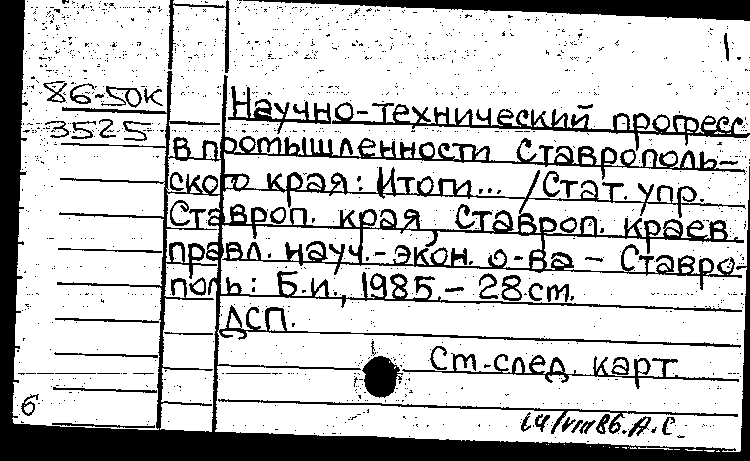 1.
86-50К
3525
Научно-технический прогресс
в промышленности Ставрополь-
ского края: Итоги... /Стат. упр.
Ставроп. края, Ставроп. краев.
правл. науч.-экон. о-ва - Ставро-
поль: Б.и., 1985.- 28 ст.
ДСП.
Ст.-след. карт.
6
14/VIII 86. А.С.